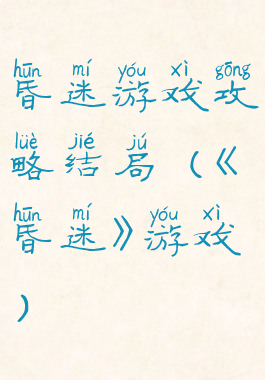 hūn mí yóu xì gōng
昏迷游戏攻
lüè jié jú
略结局（《
hūn mí yóu xì
昏迷》游戏
）